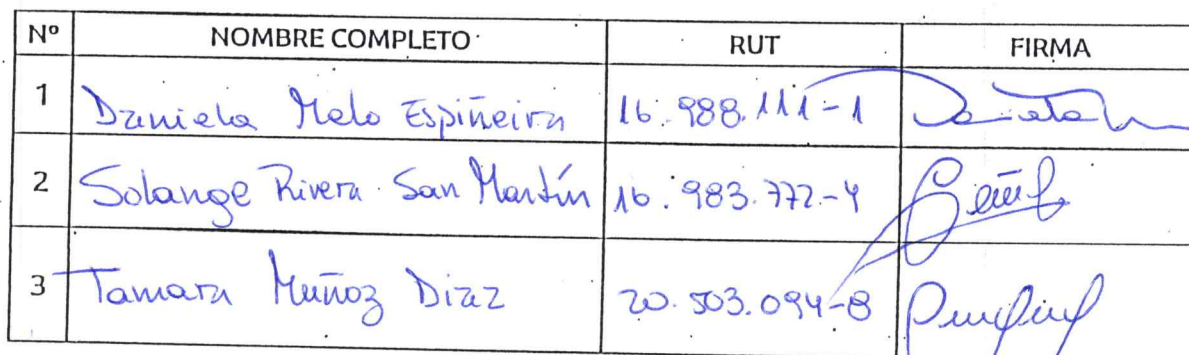 Nº NOMBRE COMPLETO RUT FIRMA
1 Daniela Melo Espiñeira 16.988.111-1
2 Solange Rivera San Martín 16.983.772-4
3 Tamara Muñoz Diaz 20.503.094-8